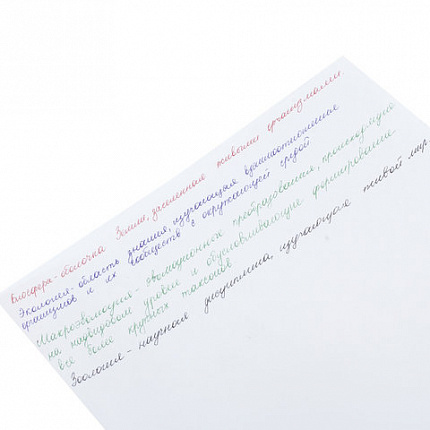 Биосфера - оболочка Земли, заселённая живыми организмами
Экология - область знания, изучающая взаимоотношения
организмов и их сообществ с окружающей средой
Макроэволюция - эволюционные преобразования, происходящие
на надвидовом уровне и обусловливающие формирование
всё более крупных таксонов
Зоология - научная дисциплина, изучающая живой мир